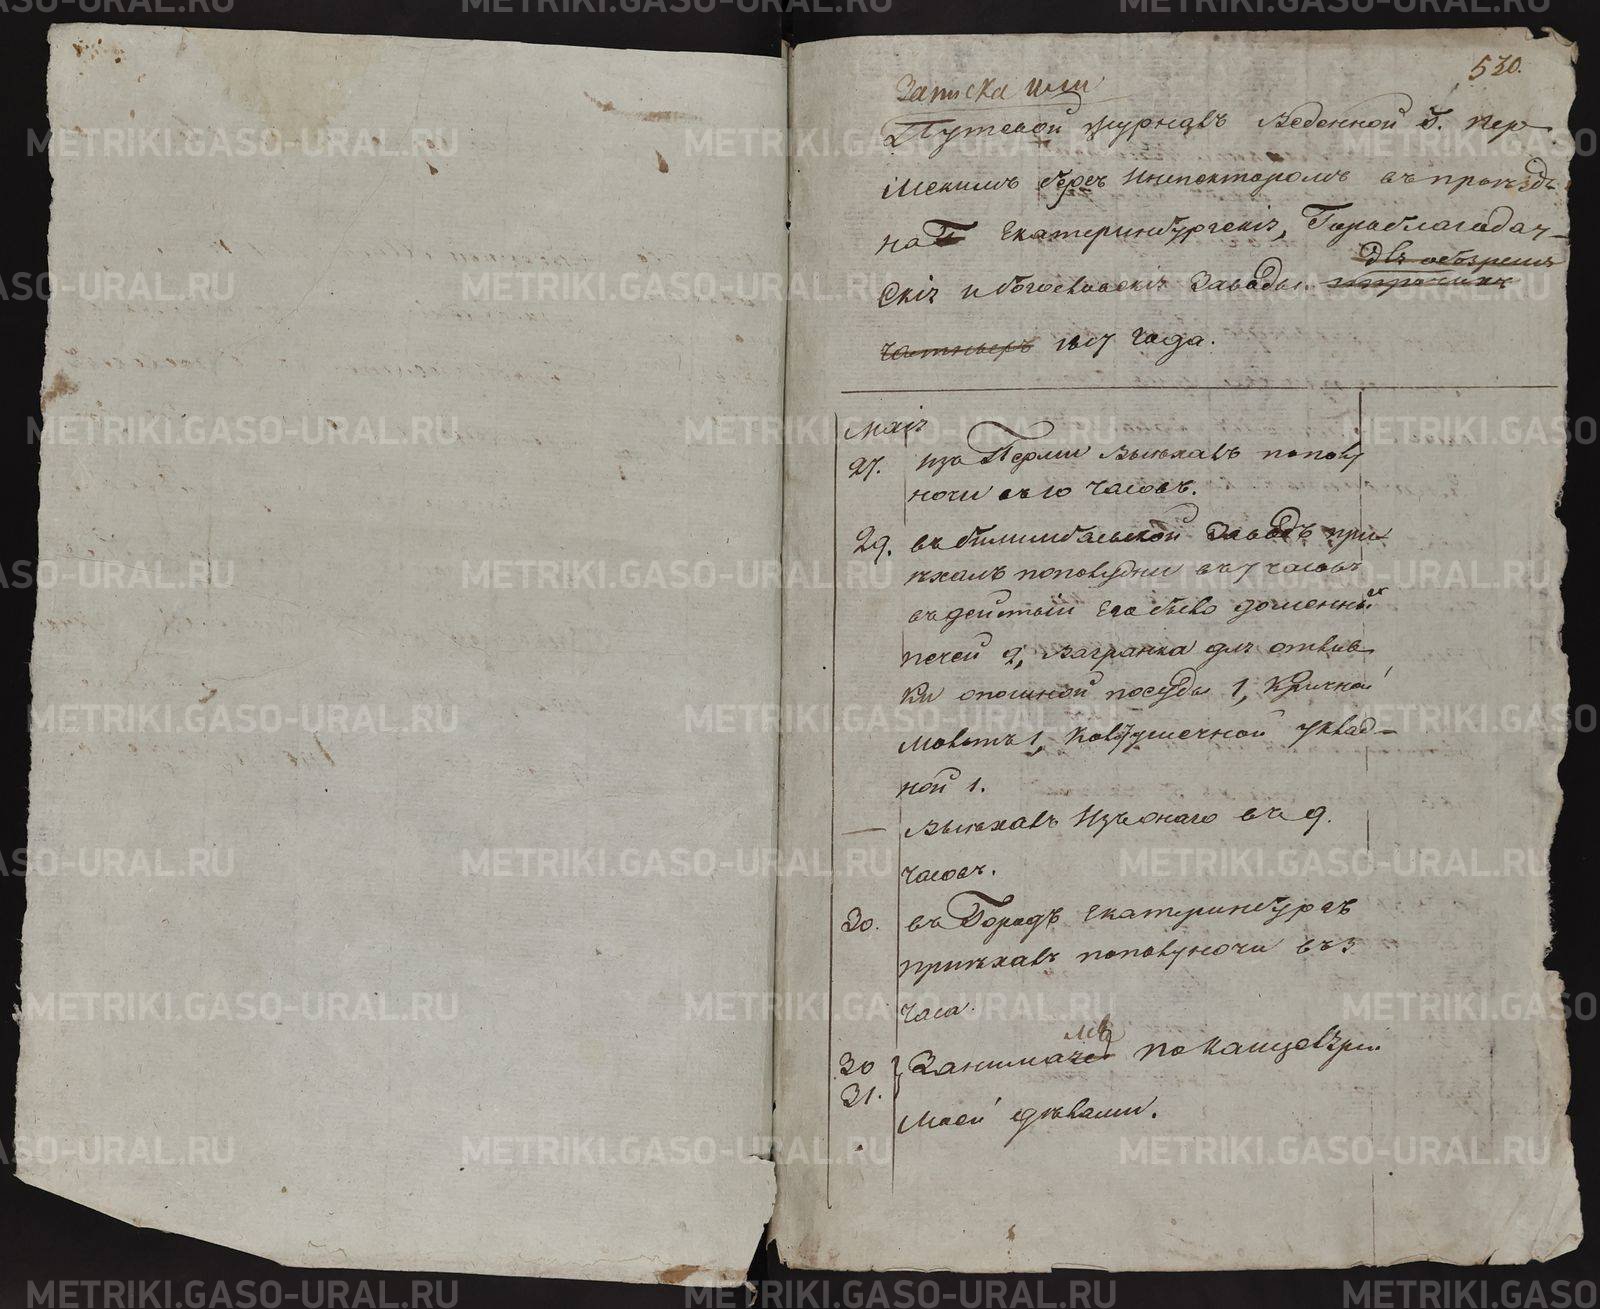 530.
Записка или
Путевой журналъ веденной Г. Пер
мскимъ берг Инспекторомъ въ проездъ
на Екатеринбургскія, Гороблагодат-
для обозрения
скія и богословскія заводы.
1807 года.
Маія
27. изъ Перми выехалъ пополу
ночи въ 10 часовъ.
29. въ билимбаевской заводъ при
ехалъ пополудни въ 7 часовъ
въ действіи его было доменныхъ
печей 2, вагранка для отлив
ки опошной посуды 1, кричной
молотъ 1, колотушечной уклад-
ной 1.
— выехалъ изъ онаго въ 9.
часовъ.
30. въ Городъ Екатеринбургъ
приехалъ пополуночи въ 3
часа.
30 Занимался по канцелярии
31. моей делами.
METRIKI.GASO-URAL.RU